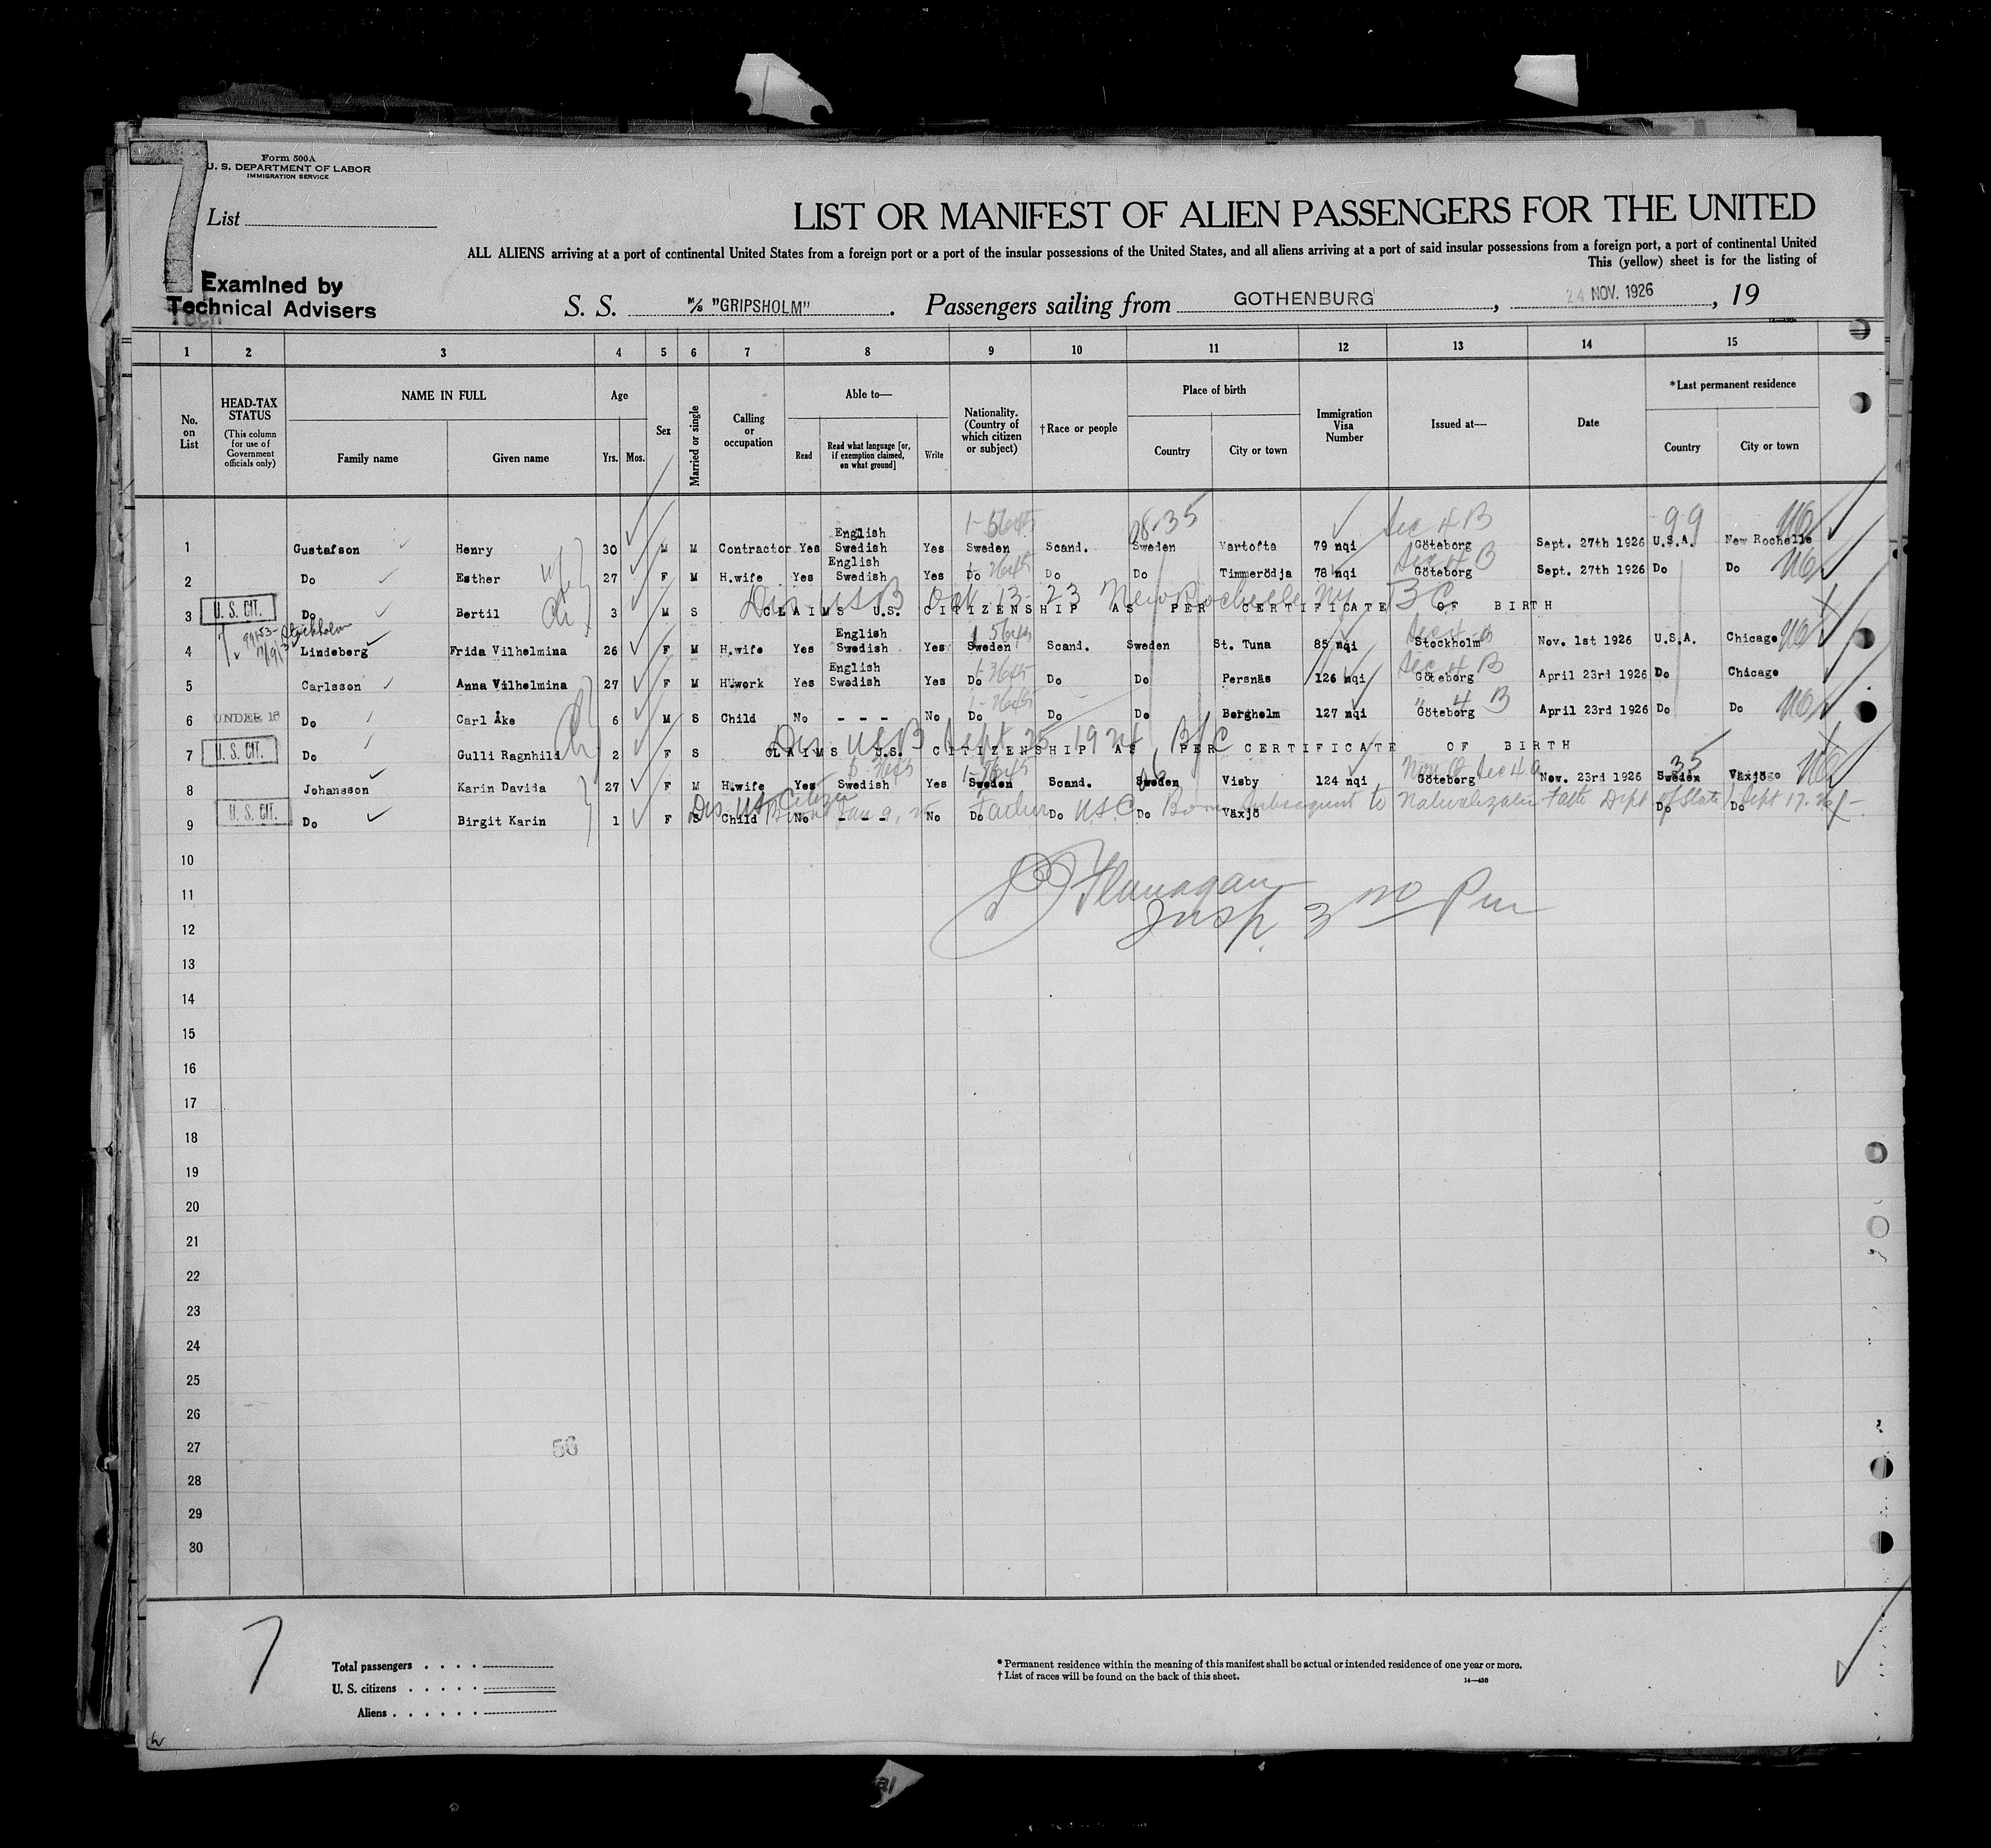 7
Form 500A
U. S. DEPARTMENT OF LABOR
IMMIGRATION SERVICE
List
LIST OR MANIFEST OF ALIEN PASSENGERS FOR THE UNITED
ALL ALIENS arriving at a port of continental United States from a foreign port or a port of the insular possessions of the United States, and all aliens arriving at a port of said insular possessions from a foreign port, a port of continental United
This (yellow) sheet is for the listing of
Examined by
Technical Advisers
Tech
S. S. M/S "GRIPSHOLM". Passengers sailing from GOTHENBURG, 24 NOV. 1926, 19
1 2 3 4 5 6 7 8 9 10 11 12 13 14 15
No. on List
HEAD-TAX STATUS (This column for use of Government officials only)
NAME IN FULL
Family name Given name
Age
Yrs. Mos.
Sex
Married or single
Calling or occupation
Able to—
Read
Read what language [or, if exemption claimed, on what ground]
Write
Nationality. (Country of which citizen or subject)
†Race or people
Place of birth
Country City or town
Immigration Visa Number
Issued at—
Date
*Last permanent residence
Country City or town
1-5645 08.35 Sec 4 B 99
1 Gustafson Henry 30 M M Contractor Yes English Swedish Yes Sweden Scand. Sweden Vartofta 79 nqi Göteborg Sept. 27th 1926 U.S.A. New Rochelle
2 Do Esther wife 27 F M H.wife Yes English Swedish Yes Do Do Do Timmerödja 78 nqi Göteborg Sept. 27th 1926 Do Do
Dis. USB Oct 13-23 New Rochelle NY BC
U. S. CIT.
3 Do Bertil Ch 3 M S CLAIMS U.S. CITIZENSHIP AS PER CERTIFICATE OF BIRTH
Stockholm
4 Lindeberg Frida Vilhelmina 26 F M H.wife Yes English Swedish Yes Sweden Scand. Sweden St. Tuna 85 nqi Stockholm Nov. 1st 1926 U.S.A. Chicago
5 Carlsson Anna Vilhelmina 27 F M H.work Yes English Swedish Yes Do Do Do Persnäs 126 nqi Göteborg April 23rd 1926 Do Chicago
UNDER 16
6 Do Carl Åke Ch 6 M S Child No - - - No Do Do Do Borgholm 127 nqi Göteborg April 23rd 1926 Do Do
Dis. USB Sept 25 1924 B/C
U. S. CIT.
7 Do Gulli Ragnhild 2 F S CLAIMS U.S. CITIZENSHIP AS PER CERTIFICATE OF BIRTH
8 Johansson Karin Davida 27 F M H.wife Yes Swedish Yes Sweden Scand. Sweden Visby 124 nqi Göteborg Nov. 23rd 1926 Sweden Växjö
Dis. US Citizen Born Jan 9, Father USC Born subsequent to Naturalization Dept of State Sept 17. 26
U. S. CIT.
9 Do Birgit Karin 1 F S Child No - - - No Do Do Do Växjö Do Do
10
11
Flanagan
12
Insp. 3 Pm
13
14
15
16
17
18
19
20
21
22
23
24
25
26
27
56
28
29
30
7
Total passengers
U. S. citizens
Aliens
* Permanent residence within the meaning of this manifest shall be actual or intended residence of one year or more.
† List of races will be found on the back of this sheet.
14—430